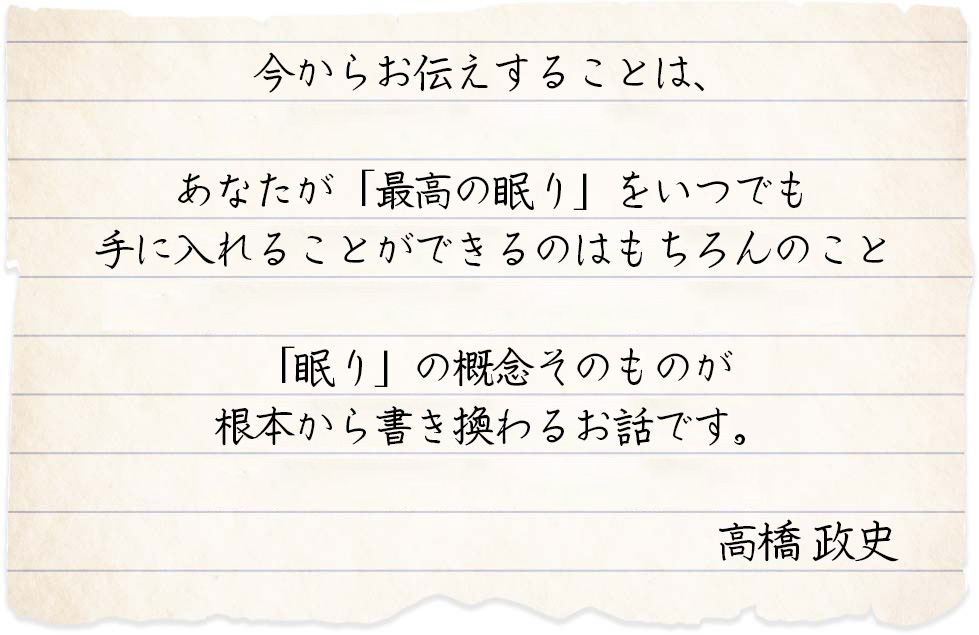 今からお伝えすることは、
あなたが「最高の眠り」をいつでも
手に入れることができるのはもちろんのこと
「眠り」の概念そのものが
根本から書き換わるお話です。
高橋 政史